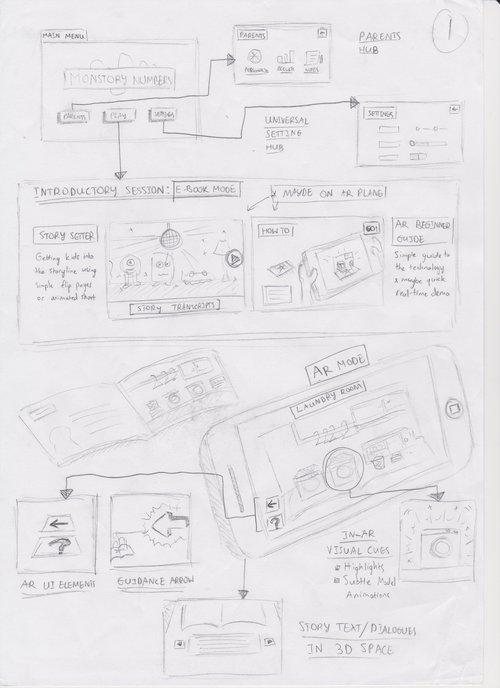 1
MAIN MENU
MONSTORY NUMBERS
PARENTS
PLAY
SETTINGS
PARENTS
PARENTS
HUB
UNIVERSAL
SETTING
HUB
SETTINGS
INTRODUCTORY SESSION: E-BOOK MODE
x MAYBE ON AR PLANE
STORY SETTER
Getting kids into
the storyline using
simple flip pages
or animated short
STORY TRANSCRIPTS
HOW TO
GO!
AR BEGINNER
GUIDE
Simple guide to
the technology
x maybe quick
real-time demo
AR MODE
LAUNDRY ROOM
?
?
AR UI ELEMENTS
GUIDANCE ARROW
IN-AR
VISUAL CUES
Highlights
Subtle Model
Animations
STORY TEXT/DIALOGUES
IN 3D SPACE